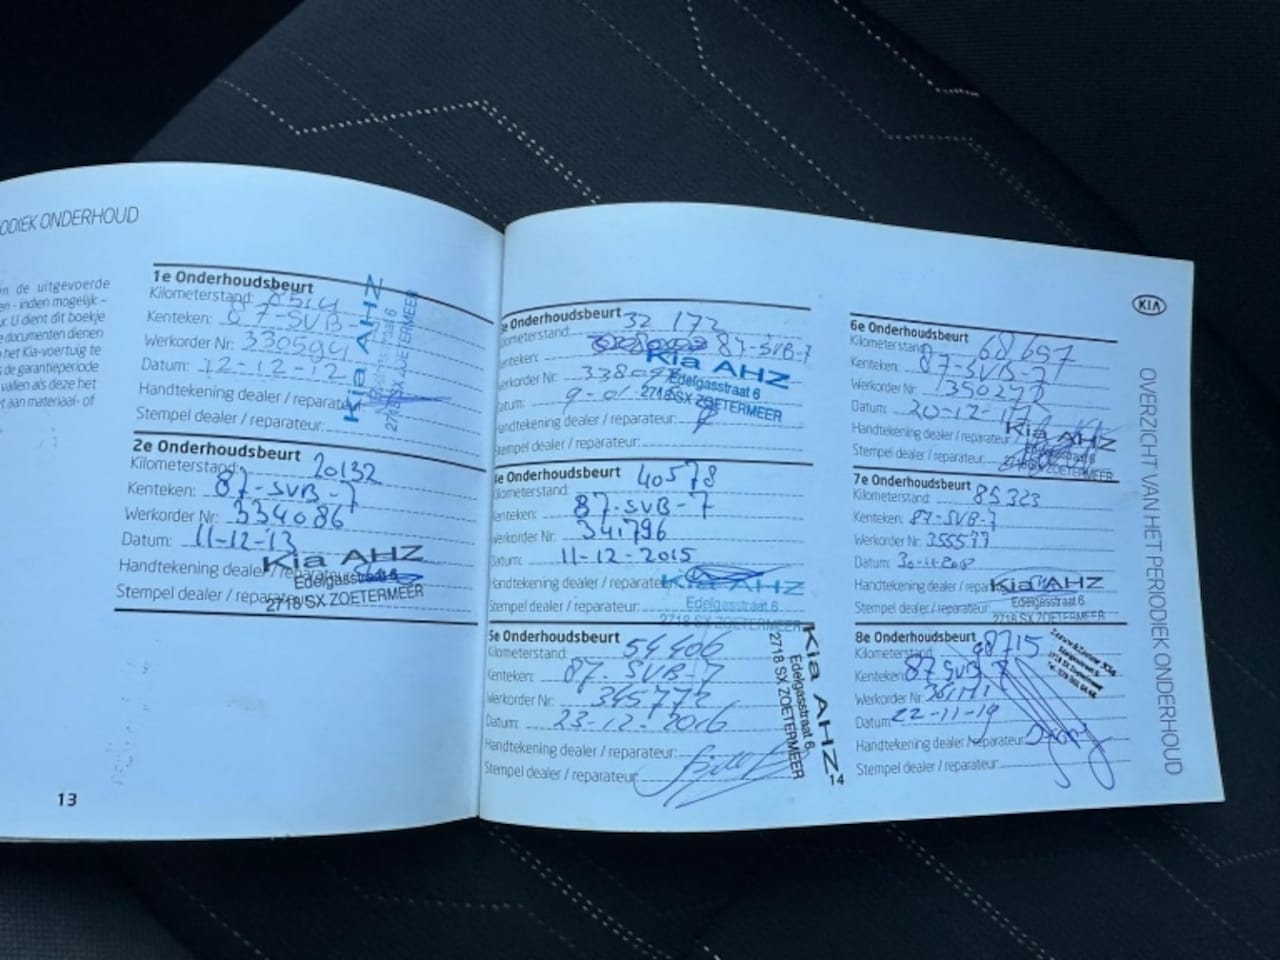 ODIEK ONDERHOUD
n de uitgevoerde
en - indien mogelijk -
r. U dient dit boekje
documenten dienen
het Kia-voertuig te
de garantieperiode
vallen als deze het
t aan materiaal- of
1e Onderhoudsbeurt
Kilometerstand:
Kenteken: 87-SVB-
Werkorder Nr: 330594
Datum: 12-12-12
Handtekening dealer / reparateur:
Stempel dealer / reparateur:
Kia AHZ
Edelgasstraat 6
2718 SX ZOETERMEER
2e Onderhoudsbeurt
Kilometerstand: 20132
Kenteken: 87-SVB-7
Werkorder Nr: 334086
Datum: 11-12-13
Handtekening dealer / reparateur:
Stempel dealer / reparateur:
Kia AHZ
Edelgasstraat 6
2718 SX ZOETERMEER
13
e Onderhoudsbeurt
ilometerstand: 32 172
enteken: 87-SVB-7
erkorder Nr:
atum:
andtekening dealer / reparateur:
tempel dealer / reparateur:
Kia AHZ
Edelgasstraat 6
2718 SX ZOETERMEER
e Onderhoudsbeurt
ilometerstand: 40578
enteken: 87-SVB-7
erkorder Nr: 341796
Datum: 11-12-2015
Handtekening dealer / reparateur:
Stempel dealer / reparateur:
Kia AHZ
Edelgasstraat 6
2718 SX ZOETERMEER
5e Onderhoudsbeurt
Kilometerstand: 54406
Kenteken: 87-SVB-7
Werkorder Nr: 345772
Datum: 23-12-2016
Handtekening dealer / reparateur:
Stempel dealer / reparateur:
Kia AHZ
Edelgasstraat 6
2718 SX ZOETERMEER
14
KIA
6e Onderhoudsbeurt
Kilometerstand: 68697
Kenteken: 87-SVB-7
Werkorder Nr:
Datum: 20-12-17
Handtekening dealer / reparateur:
Stempel dealer / reparateur:
Kia AHZ
Edelgasstraat 6
2718 SX ZOETERMEER
7e Onderhoudsbeurt
Kilometerstand: 85323
Kenteken: 87-SVB-7
Werkorder Nr: 355577
Datum:
Handtekening dealer / reparateur:
Stempel dealer / reparateur:
Kia AHZ
Edelgasstraat 6
2718 SX ZOETERMEER
8e Onderhoudsbeurt
Kilometerstand: 98715
Kenteken: 87 SVB 7
Werkorder Nr:
Datum: 22-11-19
Handtekening dealer / reparateur:
Stempel dealer / reparateur:
OVERZICHT VAN HET PERIODIEK ONDERHOUD